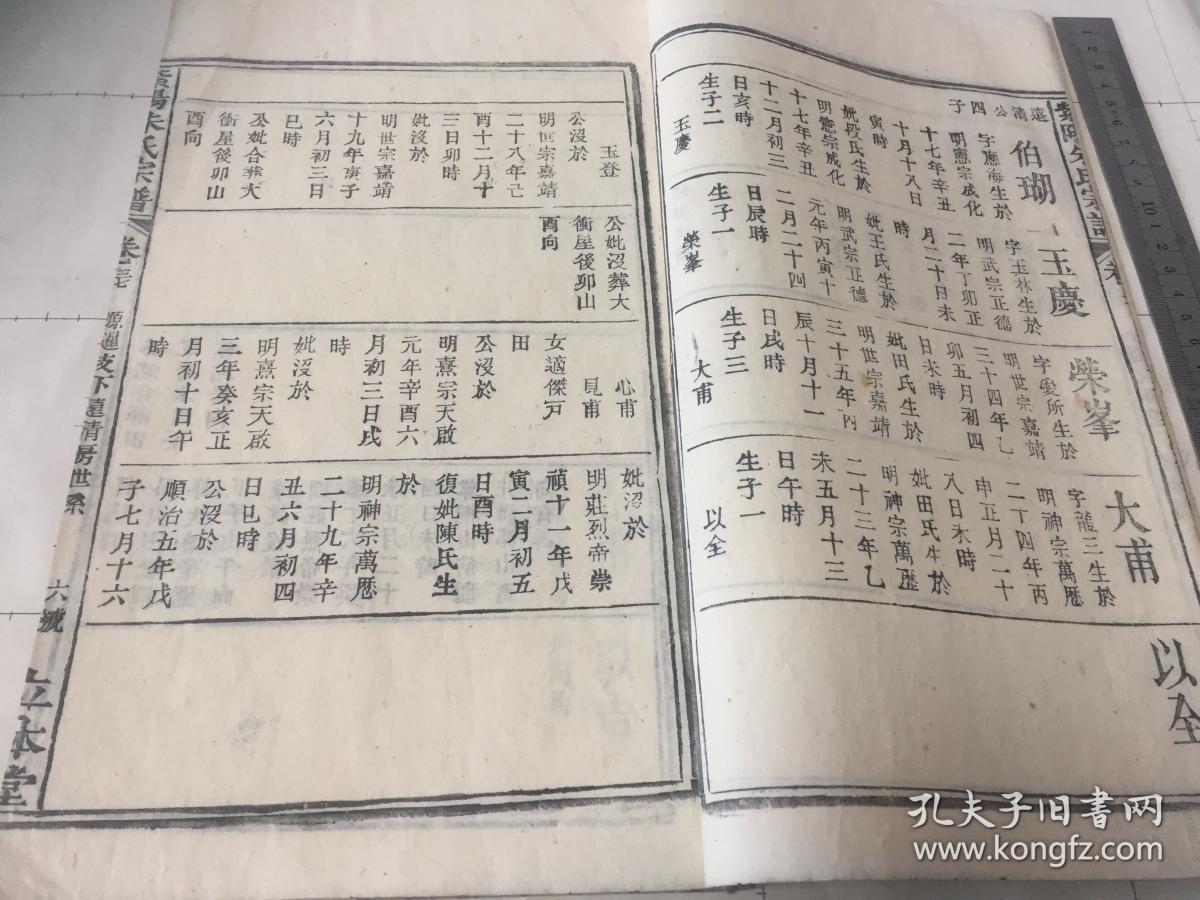 遠清公四子
伯瑚
字應海生於
明憲宗成化
十七年辛丑
十月十八日
寅時
妣段氏生於
明憲宗成化
十七年辛丑
十二月初三
日亥時
生子二
玉慶
玉慶
字玉林生於
明武宗正德
二年丁卯正
月二十日未
時
妣王氏生於
明武宗正德
元年丙寅十
二月二十四
日辰時
生子一
榮峯
榮峯
字愛所生於
明世宗嘉靖
三十四年乙
卯五月初四
日未時
妣田氏生於
明世宗嘉靖
三十五年丙
辰十月十一
日戌時
生子三
大甫
大甫
字龍三生於
明神宗萬厯
二十四年丙
申正月二十
八日未時
妣田氏生於
明神宗萬歷
二十三年乙
未五月十三
日午時
生子一
以全
以全
玉登
公沒於
明世宗嘉靖
二十八年己
酉十二月十
三日卯時
妣沒於
明世宗嘉靖
十九年庚子
六月初三日
巳時
公妣合葬大
衝屋後卯山
酉向
公妣沒葬大
衝屋後卯山
酉向
心甫
見甫
女適傑戸
田
公沒於
明熹宗天啟
元年辛酉六
月初三日戌
時
妣沒於
明熹宗天啟
三年癸亥正
月初十日午
時
妣沒於
明莊烈帝崇
禎十一年戊
寅二月初五
日酉時
復妣陳氏生
於
明神宗萬厯
二十九年辛
丑六月初四
日巳時
公沒於
順治五年戊
子七月十六
紫陽朱氏宗譜
源暹支下遠清房世系
六號
立本堂
孔夫子旧书网
www.kongfz.com